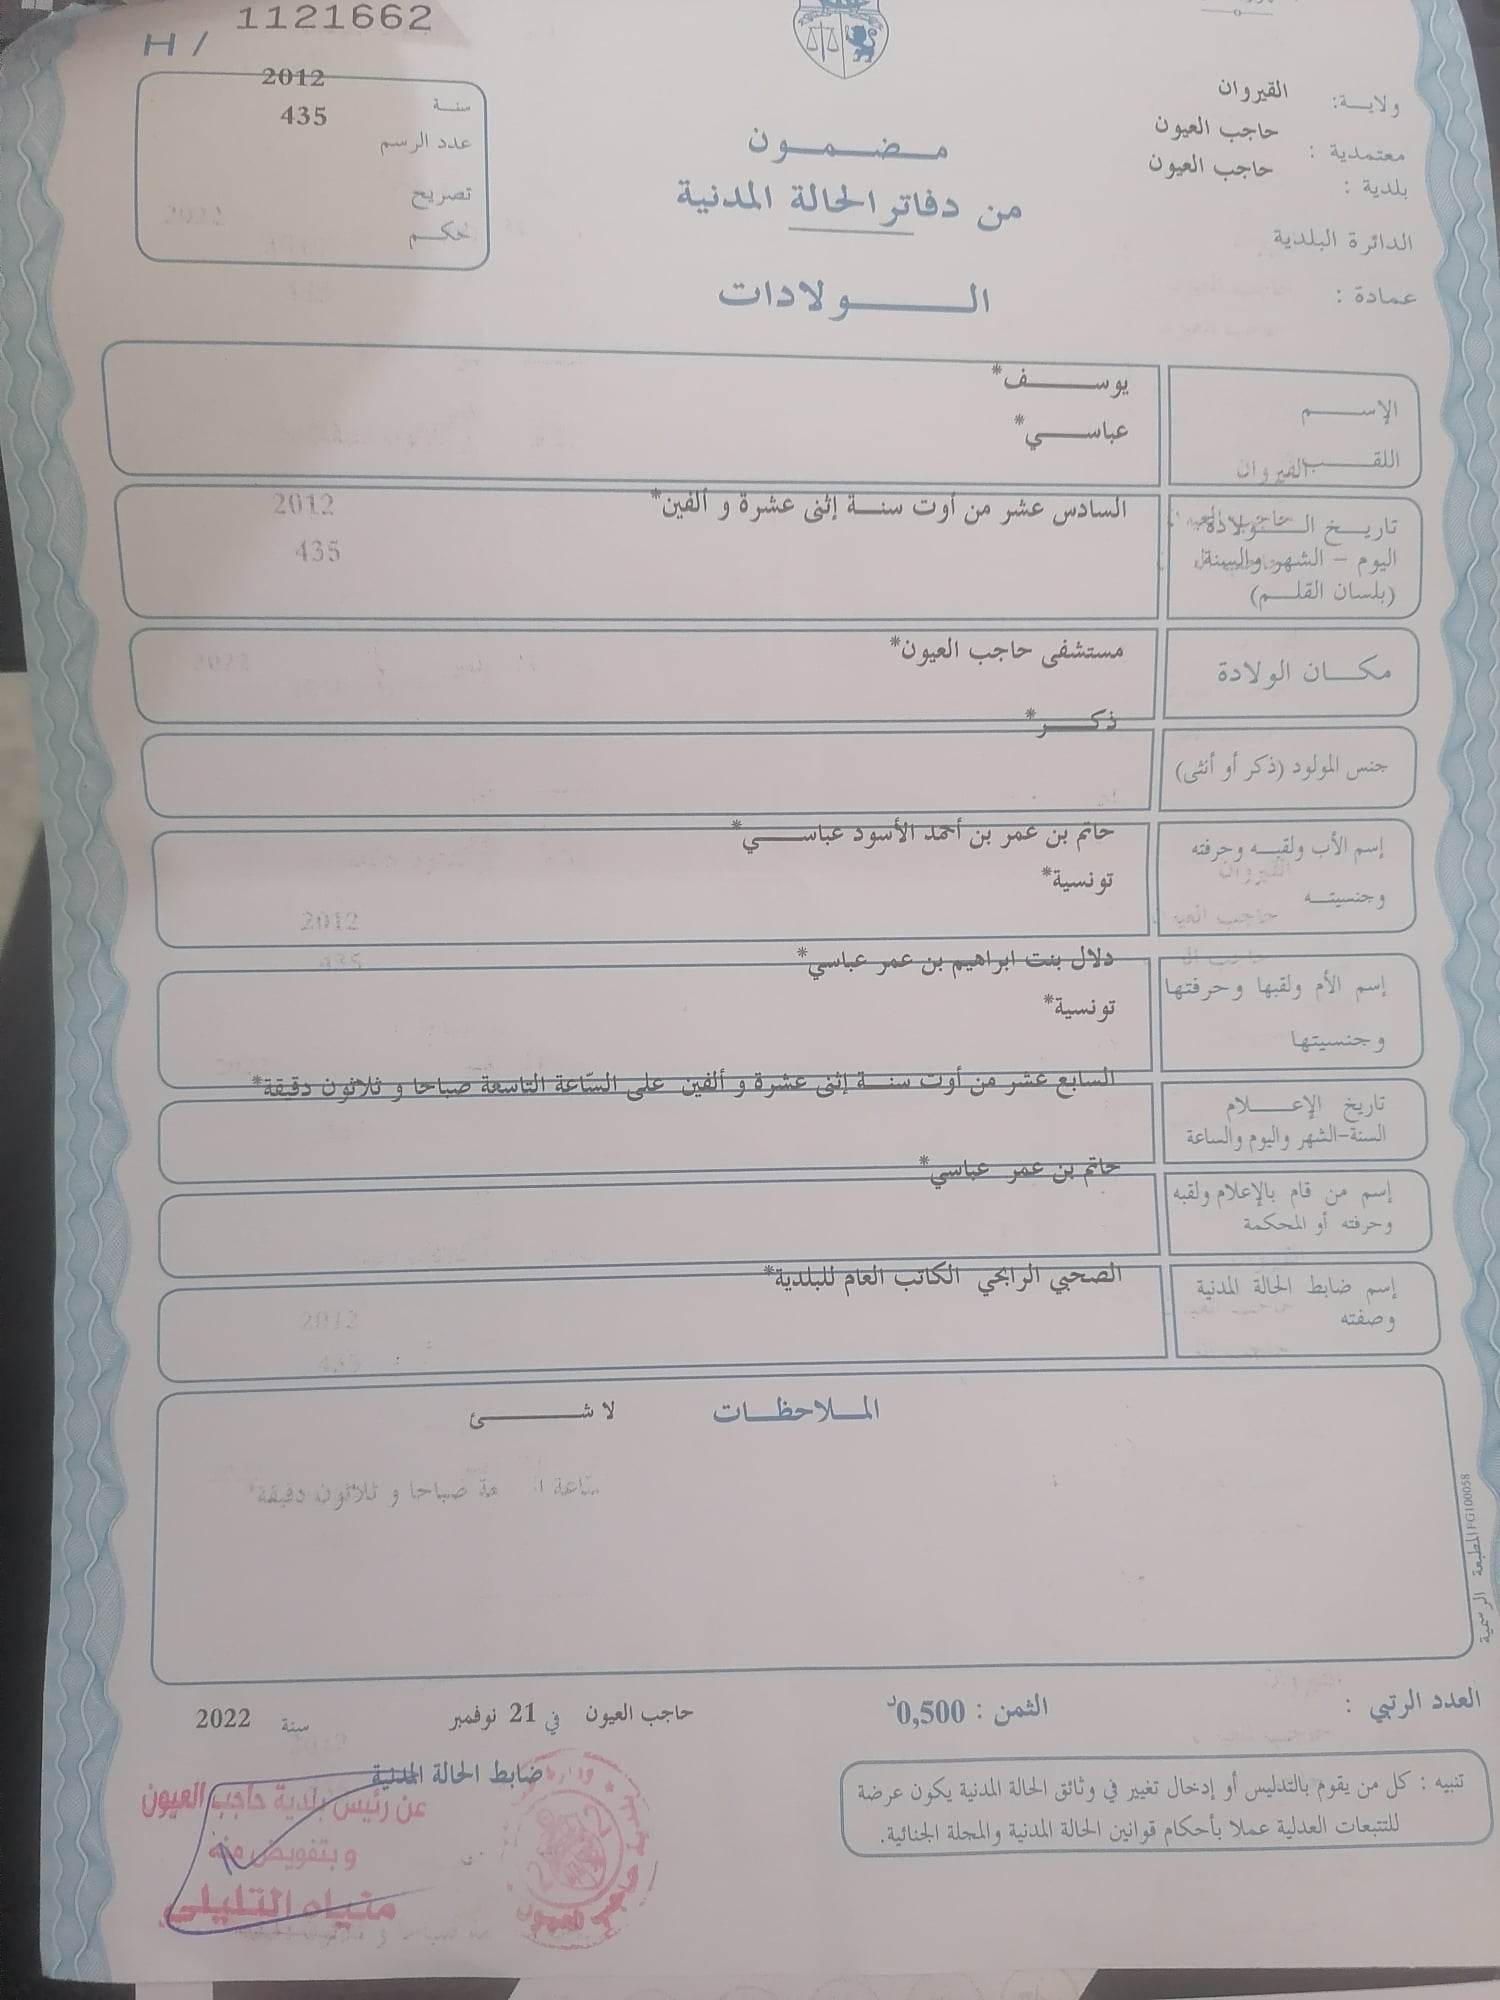 1121662
H /
ولاية: القيروان
معتمدية : حاجب العيون
بلدية : حاجب العيون
الدائرة البلدية
عمادة :
سنة 2012
عدد الرسم 435
تصريح
حكم
مضمون
من دفاتر الحالة المدنية
الولادات
الإسم يوسف*
اللقب عباسي*
تاريخ الولادة
اليوم - الشهر والسنة
(بلسان القلم)
السادس عشر من أوت سنة إثنى عشرة و ألفين*
مكان الولادة مستشفى حاجب العيون*
جنس المولود (ذكر أو أنثى) ذكر*
إسم الأب ولقبه وحرفته
وجنسيته
حاتم بن عمر بن أحمد الأسود عباسي*
تونسية*
إسم الأم ولقبها وحرفتها
وجنسيتها
دلال بنت ابراهيم بن عمر عباسي*
تونسية*
تاريخ الإعلام
السنة-الشهر واليوم والساعة
السابع عشر من أوت سنة إثنى عشرة و ألفين على السّاعة التاسعة صباحا و ثلاثون دقيقة*
إسم من قام بالإعلام ولقبه
وحرفته أو المحكمة
حاتم بن عمر عباسي*
إسم ضابط الحالة المدنية
وصفته
الصحبي الرابحي الكاتب العام للبلدية*
الملاحظات لا شئ
المطبعة الرسمية FG100058
العدد الرتبي :
الثمن : 0,500د
حاجب العيون في 21 نوفمبر سنة 2022
ضابط الحالة المدنية
عن رئيس بلدية حاجب العيون
و بتفويض منه
تنبيه : كل من يقوم بالتدليس أو إدخال تغيير في وثائق الحالة المدنية يكون عرضة
للتتبعات العدلية عملا بأحكام قوانين الحالة المدنية والمجلة الجنائية.